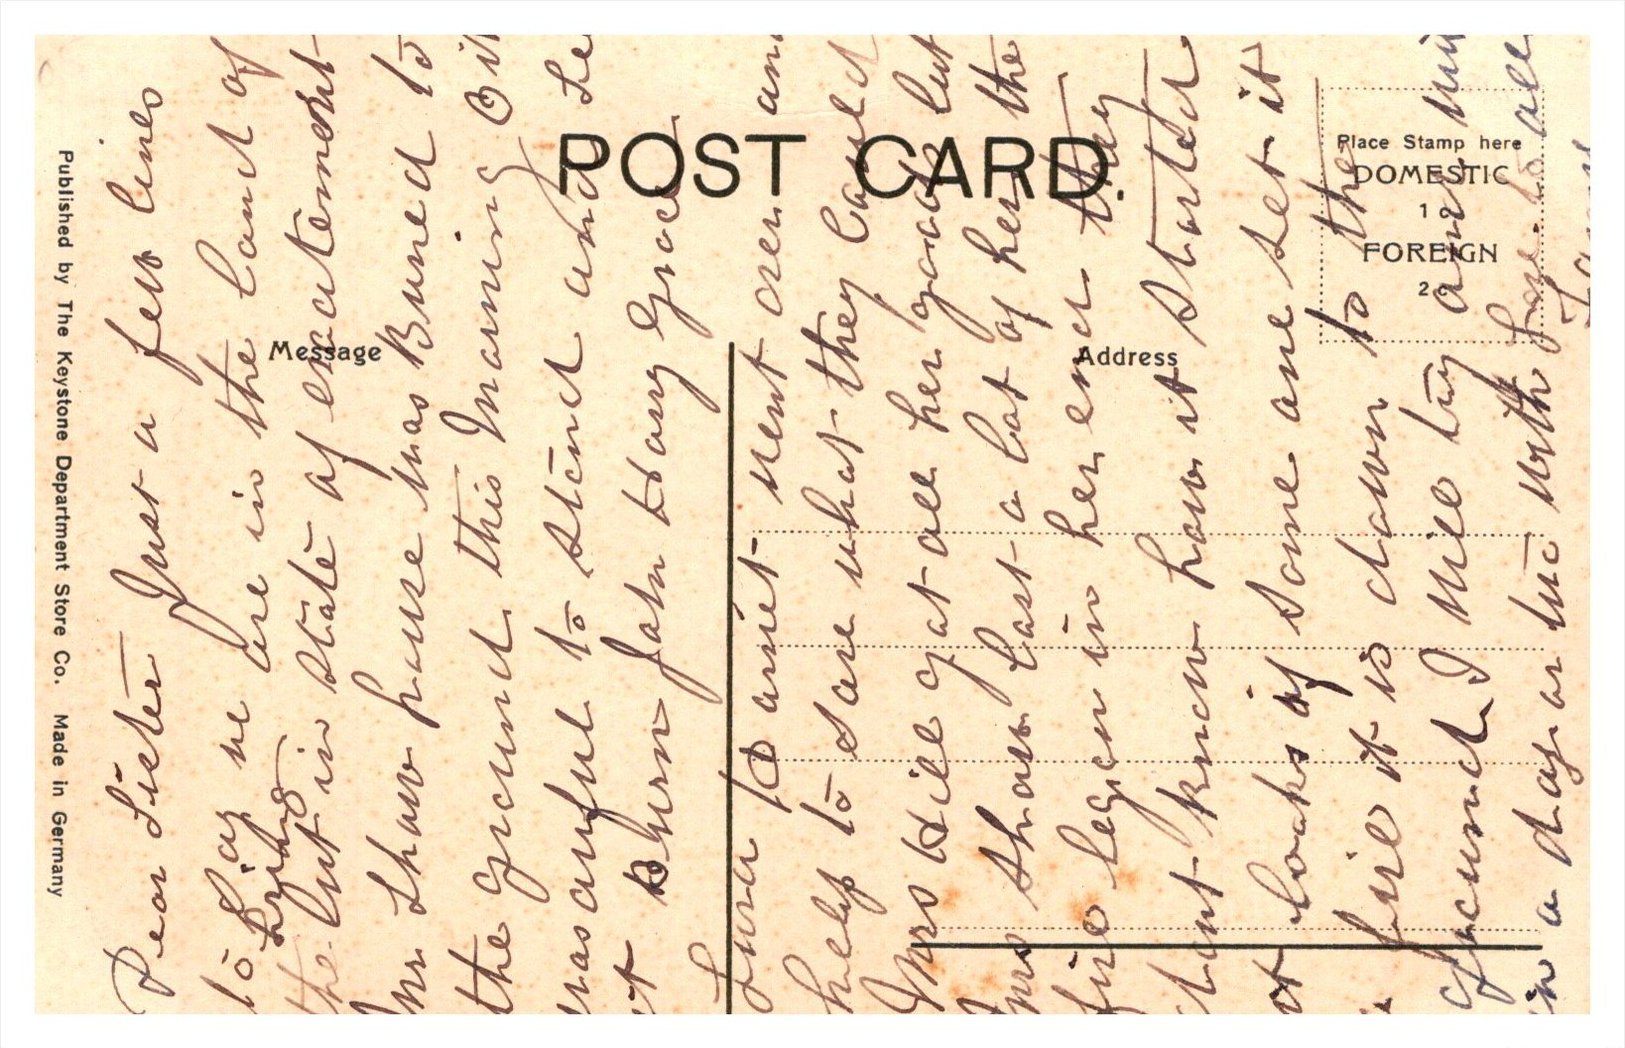 POST CARD.
Message
Address
Place Stamp here
DOMESTIC
1c
FOREIGN
2c
Published by The Keystone Department Store Co. Made in Germany
Dear Sister Just a few lines
to Say we are in the Land of
the Living
but in state of excitement
Mr Shaw house was Burned to
the ground this Morning Oit
was awful to stand and Se
it Burn John Doug Grace
Lura & aniet went over and
help to save what they Could
Mrs Hill got all her goods but
Mrs Shaw Last a lot of her the
fire began in her end they
dont know how it started
it looks if some one set it
fire it is down to the
ground I will try and
in a day or two with Love to all